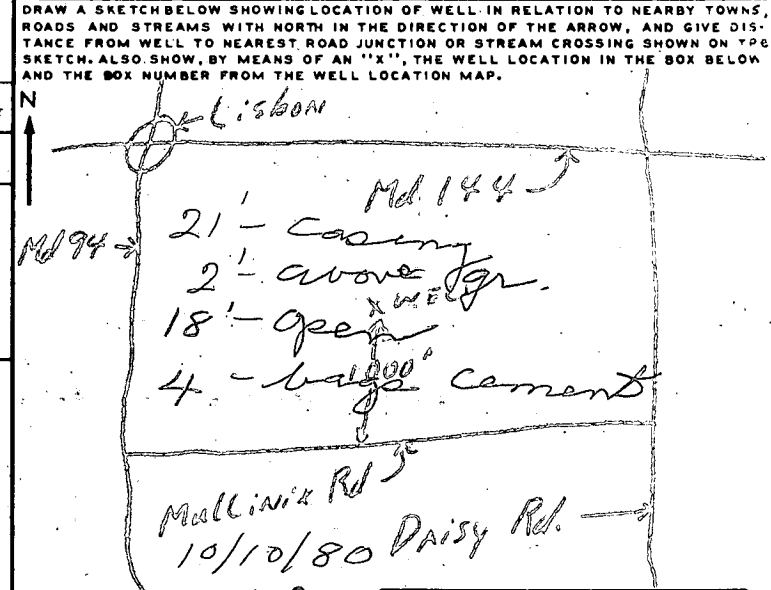 DRAW A SKETCH BELOW SHOWING LOCATION OF WELL IN RELATION TO NEARBY TOWNS,
ROADS AND STREAMS WITH NORTH IN THE DIRECTION OF THE ARROW, AND GIVE DIS-
TANCE FROM WELL TO NEAREST ROAD JUNCTION OR STREAM CROSSING SHOWN ON THE
SKETCH. ALSO SHOW, BY MEANS OF AN "X", THE WELL LOCATION IN THE BOX BELOW
AND THE BOX NUMBER FROM THE WELL LOCATION MAP.
N
Lisbon
Md. 144
Md 94
21' - casing
2' - above gr.
X WELL
18' - open
1000'
4 - bags cement
Mullinix Rd
10/10/80
Daisy Rd.